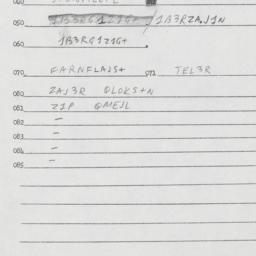 050. 1B3RZAJ1N
060. 1B3RG1Z1G+ .
070. FARNFLAJS+ 071. TEL3R
080. ZAJ3R QLOKS+N
081. Z1P QMEJL
082. –
083. –
084. –
085. –